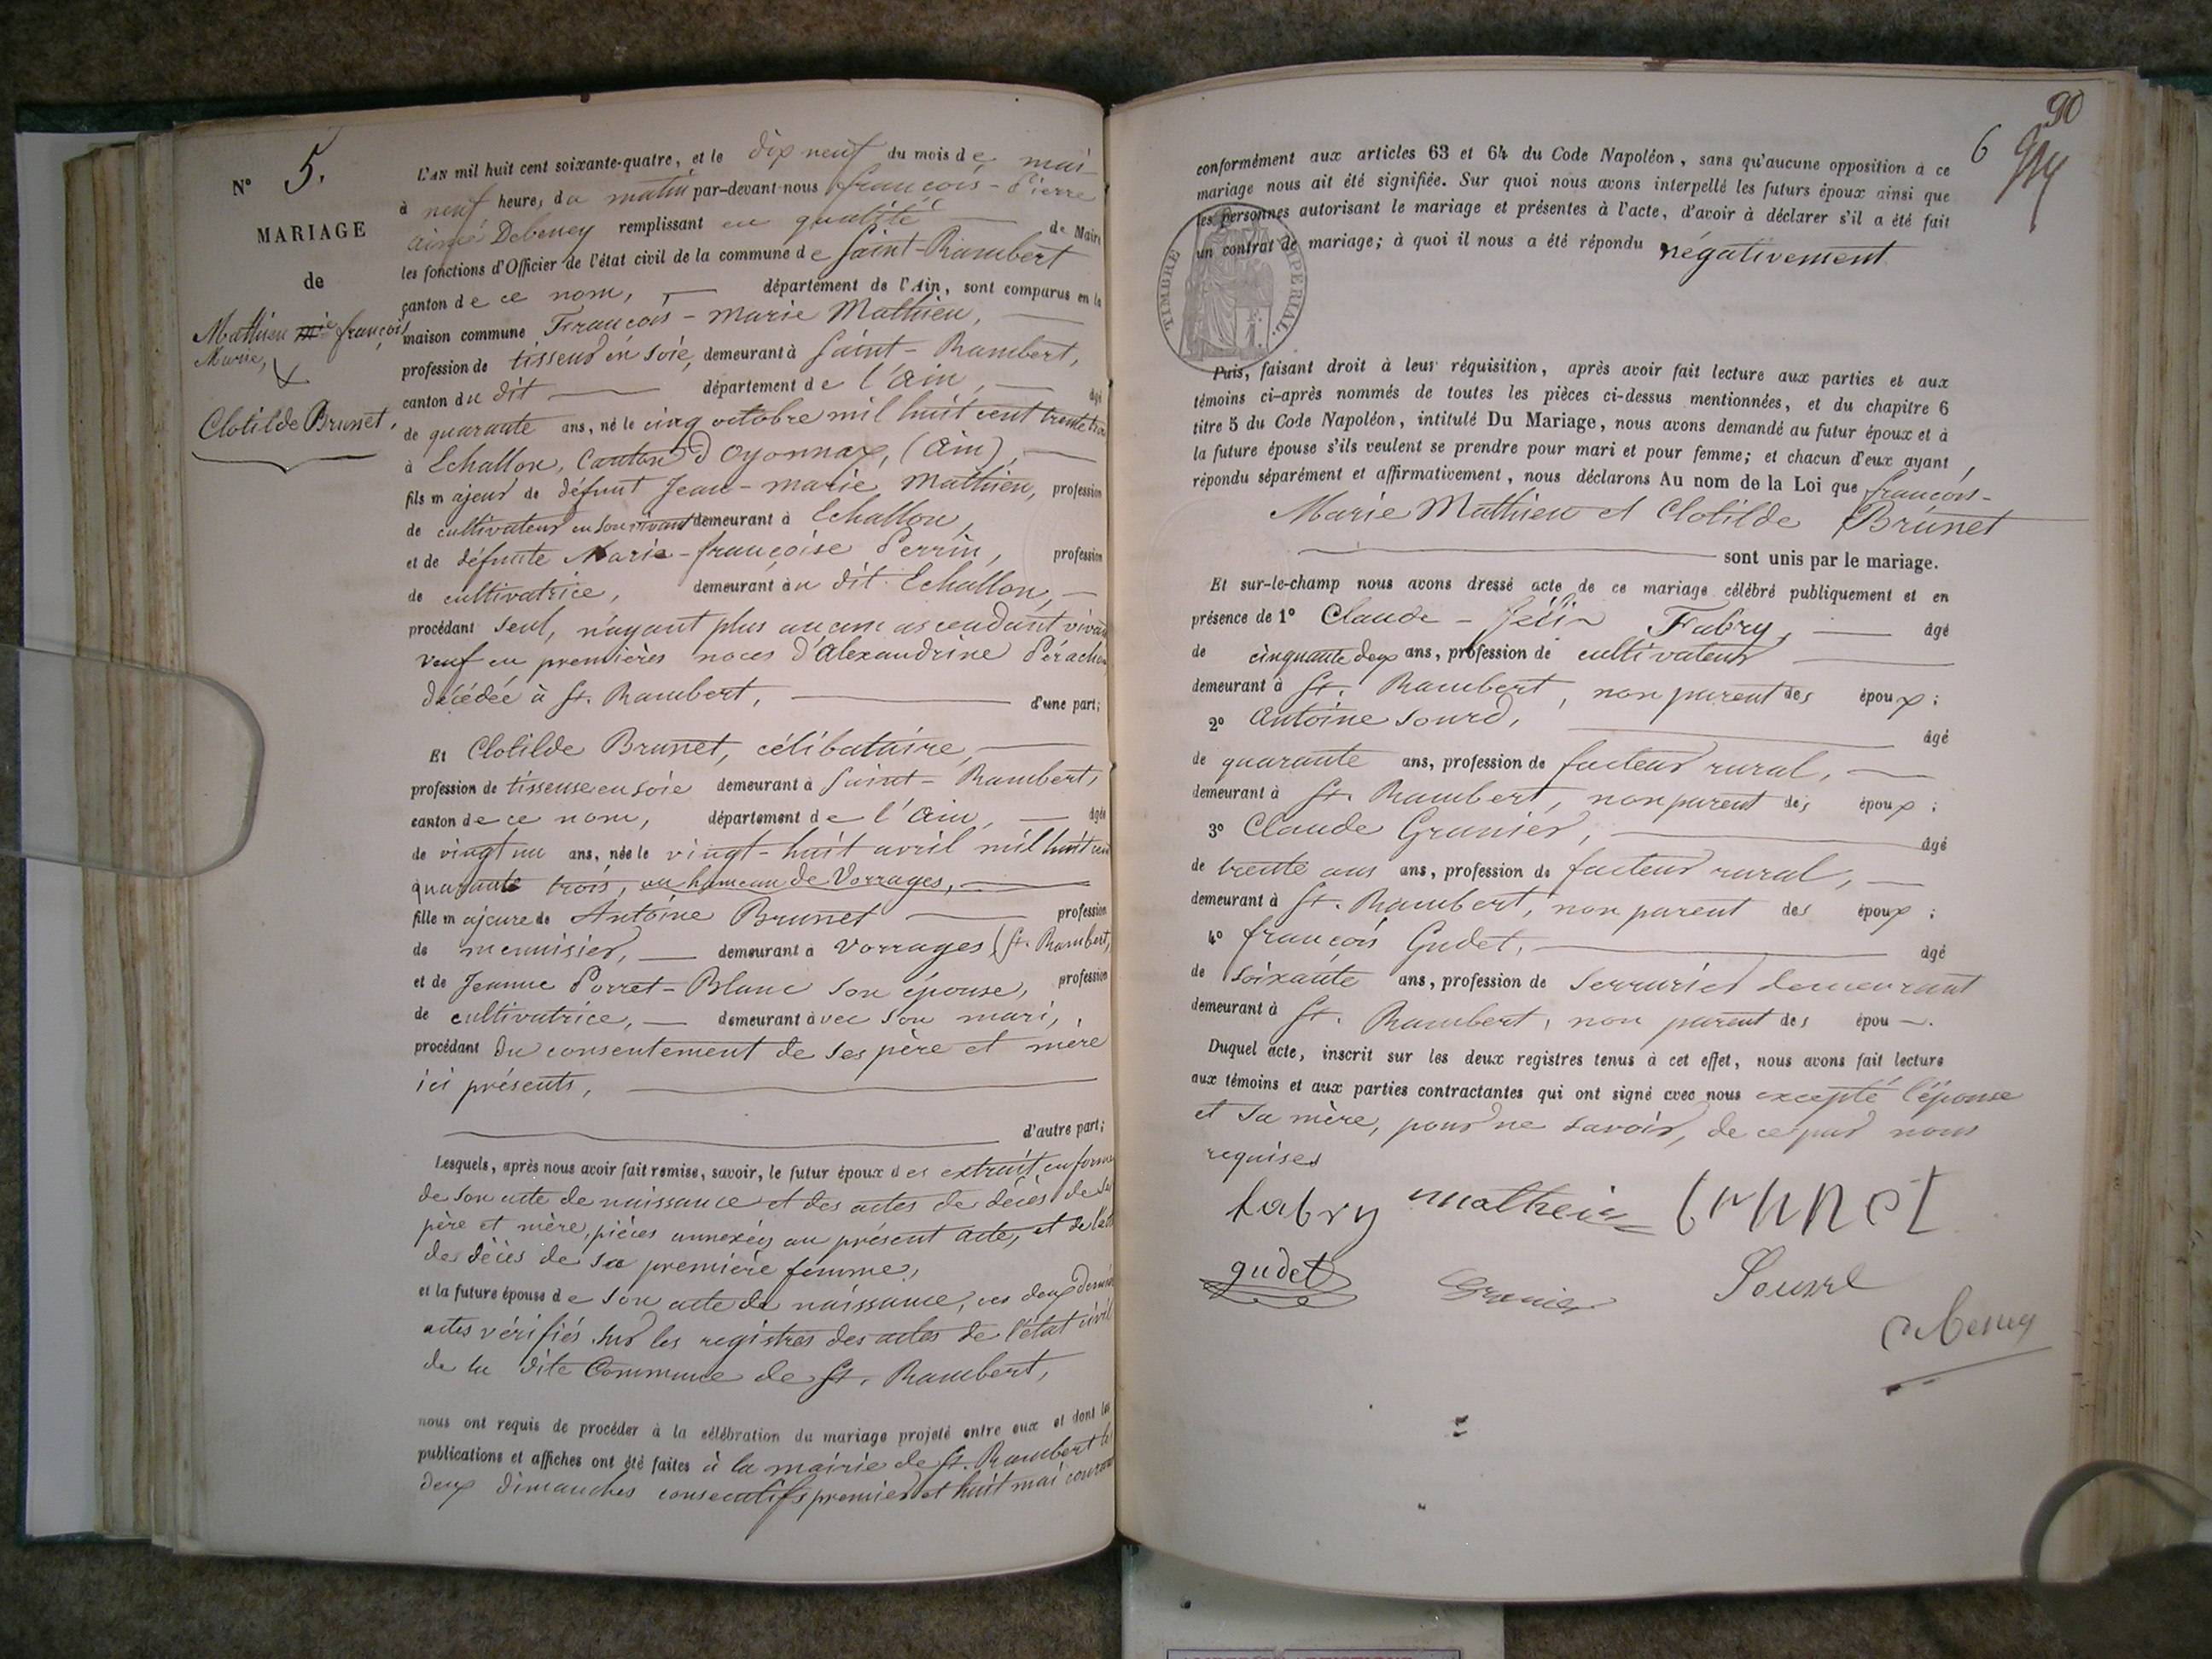 N° 5.
MARIAGE
de
Mathieu françois
Marie,
&
Clotilde Brunet,
L'AN mil huit cent soixante-quatre, et le dix neuf du mois de mai
à neuf heure, du matin par-devant-nous françois-Pierre
aimé Debeney remplissant en qualité de Maire
les fonctions d'Officier de l'état civil de la commune de Saint-Rambert
canton de ce nom, département de l'Ain, sont comparus en la
maison commune François-marie Mathieu,
profession de tisseur en soie, demeurant à Saint-Rambert,
canton du dit département de l'ain, âgé
de quarante ans, né le cinq octobre mil huit cent trente
à Echallon, Canton d'Oyonnax, (Ain),
fils majeur de défunt Jean-marie Mathieu, profession
de cultivateur en son vivant demeurant à Echallon,
et de défunte Marie-françoise Perrin, profession
de cultivatrice, demeurant au dit Echallon,
procédant seul, n'ayant plus aucun ascendant vivant
veuf en premières noces d'Alexandrine
décédée à St. Rambert, d'une part;
Et Clotilde Brunet, célibataire,
profession de tisseuse en soie demeurant à Saint-Rambert,
canton de ce nom, département de l'ain, âgée
de vingt un ans, née le vingt-huit avril mil huit cent
quarante trois, au hameau de Vorrages,
fille majeure de Antoine Brunet profession
de menuisier, demeurant à Vorrages (St. Rambert,
et de Jeanne Porret-Blanc son épouse, profession
de cultivatrice, demeurant avec son mari,
procédant du consentement de ses père et mère
ici présents,
d'autre part;
Lesquels, après nous avoir fait remise, savoir, le futur époux des extrait en forme
de son acte de naissance et des actes de décès de ses
père et mère, pièces annexées au présent acte, et de l'acte
des décès de sa première femme,
et la future épouse de son acte de naissance, ces deux derniers
actes vérifiés sur les registres des actes de l'état civil
de la dite Commune de St. Rambert,
nous ont requis de procéder à la célébration du mariage projeté entre eux et dont les
publications et affiches ont été faites à la mairie de St. Rambert les
deux dimanches consecutifs premier et huit mai courant
90
6
conformément aux articles 63 et 64 du Code Napoléon, sans qu'aucune opposition à ce
mariage nous ait été signifiée. Sur quoi nous avons interpellé les futurs époux ainsi que
les personnes autorisant le mariage et présentes à l'acte, d'avoir à déclarer s'il a été fait
un contrat de mariage; à quoi il nous a été répondu négativement
TIMBRE IMPERIAL.
Puis, faisant droit à leur réquisition, après avoir fait lecture aux parties et aux
témoins ci-après nommés de toutes les pièces ci-dessus mentionnées, et du chapitre 6
titre 5 du Code Napoléon, intitulé Du Mariage, nous avons demandé au futur époux et à
la future épouse s'ils veulent se prendre pour mari et pour femme; et chacun d'eux ayant
répondu séparément et affirmativement, nous déclarons Au nom de la Loi que françois-
Marie Mathieu et Clotilde Brunet
sont unis par le mariage.
Et sur-le-champ nous avons dressé acte de ce mariage célébré publiquement et en
présence de 1° Claude-Félix Fabry, âgé
de cinquante deux ans, profession de cultivateur
demeurant à St. Rambert, non parent des époux;
2° Antoine Sourd, âgé
de quarante ans, profession de facteur rural,
demeurant à St. Rambert, non parent des époux;
3° Claude Granier, âgé
de trente ans ans, profession de facteur rural,
demeurant à St. Rambert, non parent des époux;
4° françois Gudet, âgé
de soixante ans, profession de serrurier demeurant
demeurant à St. Rambert, non parent des épou.
Duquel acte, inscrit sur les deux registres tenus à cet effet, nous avons fait lecture
aux témoins et aux parties contractantes qui ont signé avec nous excepté l'épouse
et sa mère, pour ne savoir, de ce par nous
requises
fabry mathieu brunet
gudet Granier Sourd
Debeney